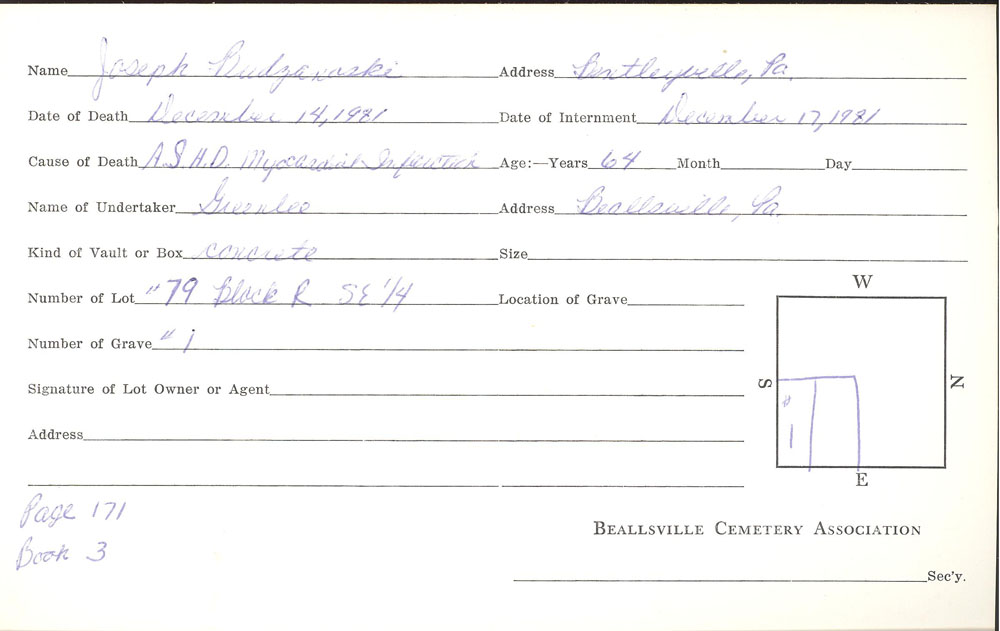 Name Joseph Budzanoski Address Bentleyville, Pa.
Date of Death December 14, 1981 Date of Internment December 17, 1981
Cause of Death A.S.H.D. Myocardial Infarction Age:—Years 64 Month Day
Name of Undertaker Greenlee Address Beallsville, Pa.
Kind of Vault or Box concrete Size
Number of Lot "79 Block R SE 1/4 Location of Grave
W
Number of Grave " 1
S N
Signature of Lot Owner or Agent
" 1
Address
E
Page 171
Book 3
BEALLSVILLE CEMETERY ASSOCIATION
Sec'y.